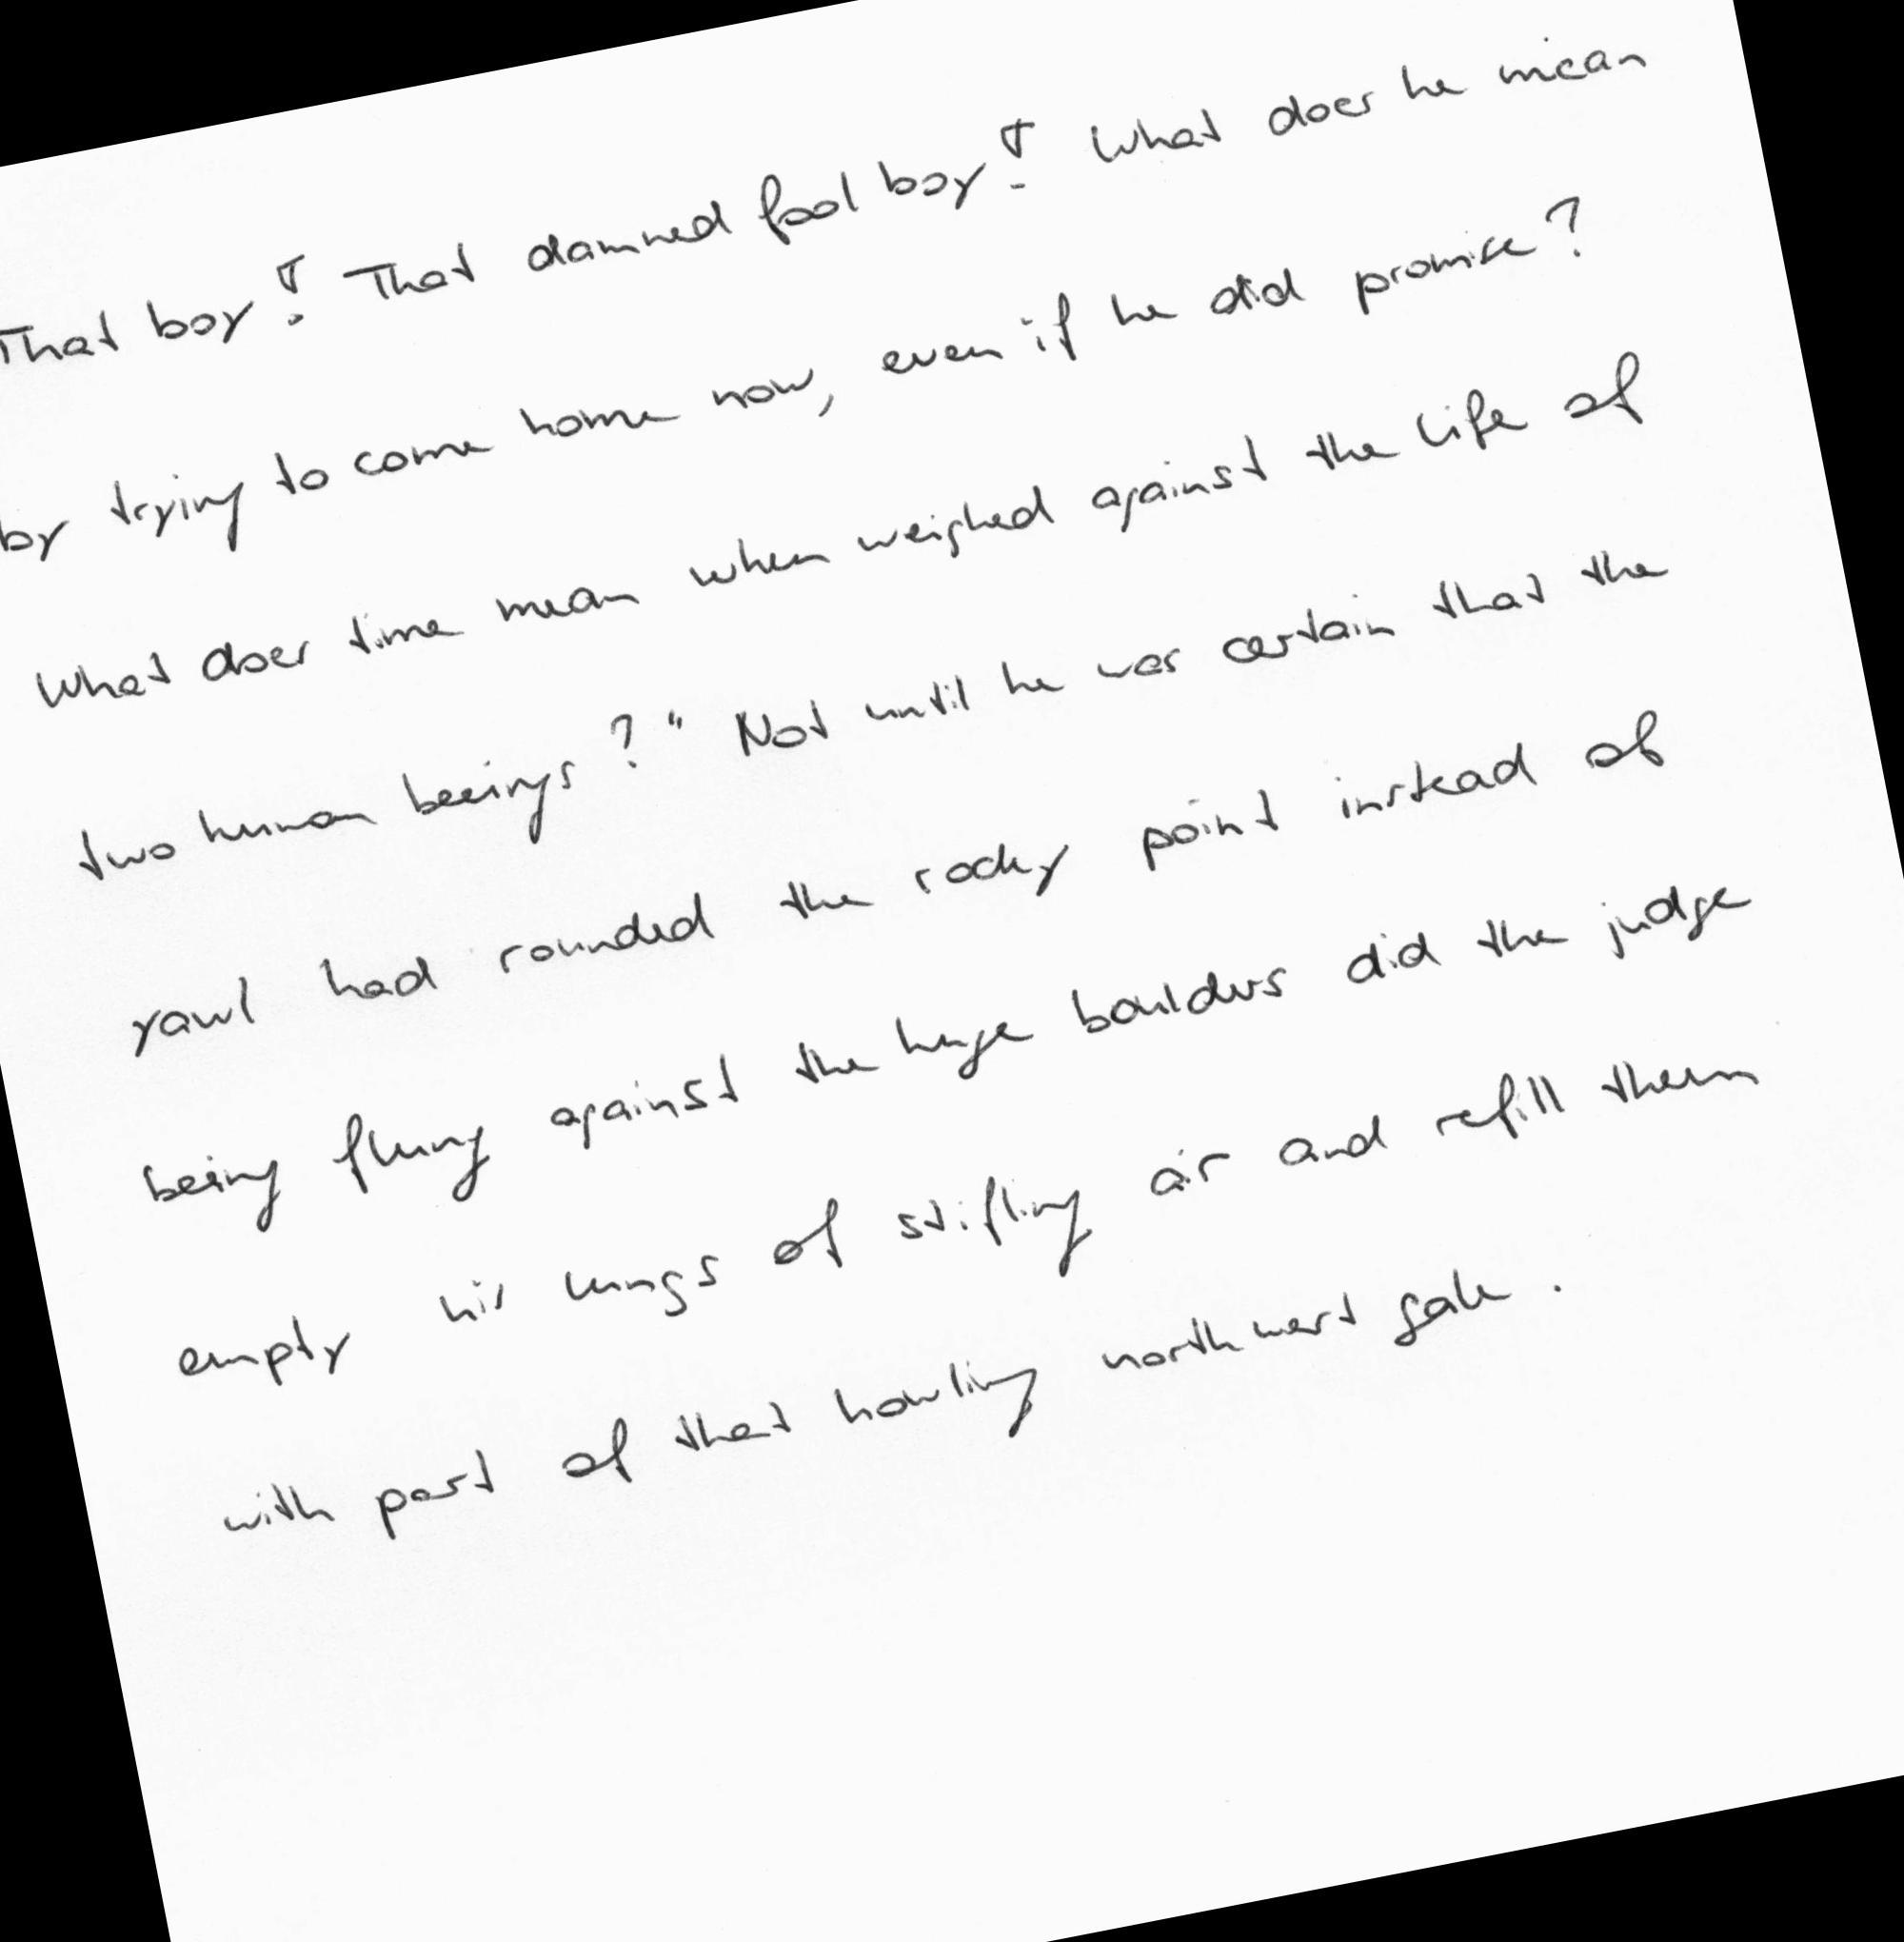 That boy! That damned fool boy! What does he mean
by trying to come home now, even if he did promise?
What does time mean when weighed against the life of
two human beeings?" Not until he was certain that the
yawl had rounded the rocky point instead of
being flung against the huge boulders did the judge
empty his lungs of stifling air and refill them
with part of that howling northwest gale.